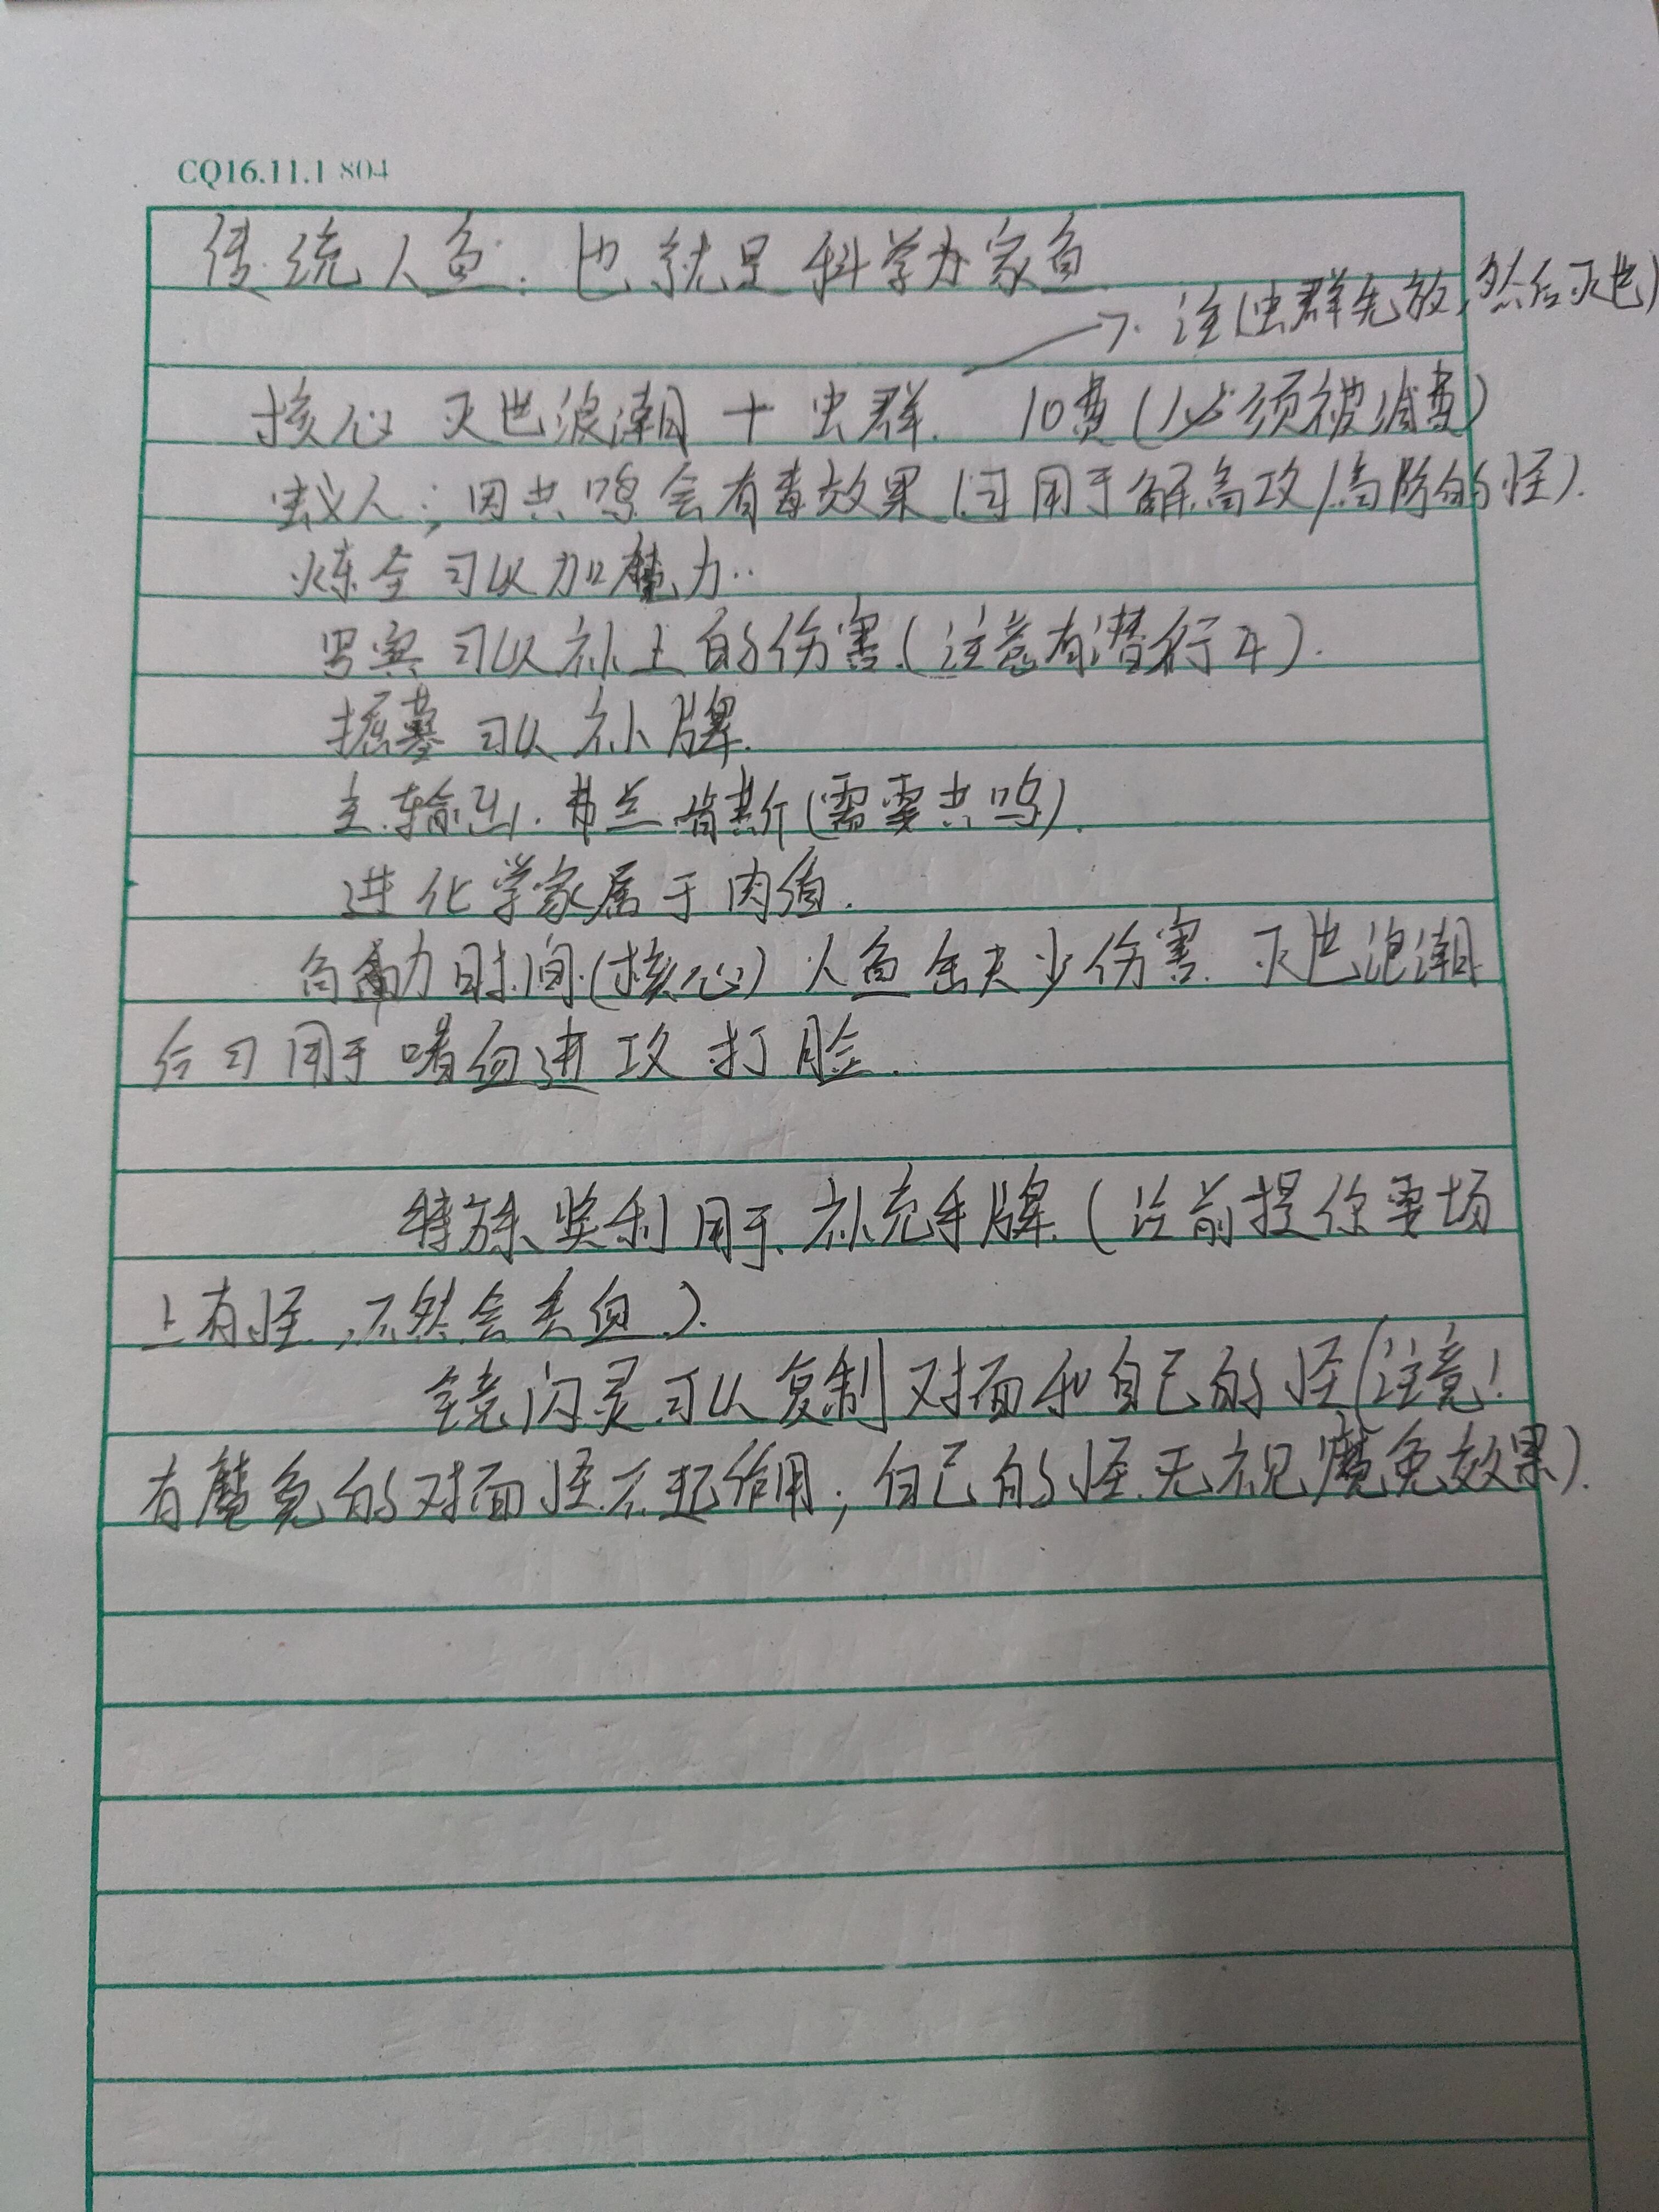 CQ16.11.1 804
传统人鱼:也就是科学办家鱼
注(虫群先放,然后灭世)
核心 灭世浪潮+虫群. 10费(必须被减费)
蚁人;因共鸣会有毒效果(可用于解高攻/高防的怪).
炼金可以加魔力..
罗宾可以补上的伤害(注意有潜行牙).
掘墓可以补牌.
主输出.弗兰肯斯(需要共鸣).
进化学家属于肉盾.
时间(核心)人鱼缺少伤害.灭世浪潮
后可用于嗜血进攻打脸.
特殊奖利用于补充手牌.(注前提你要场
上有怪,不然会丢血.).
镜闪灵可以复制对面和自己的怪(注意!
有魔免的对面怪不起作用;自己的怪无视魔免效果).